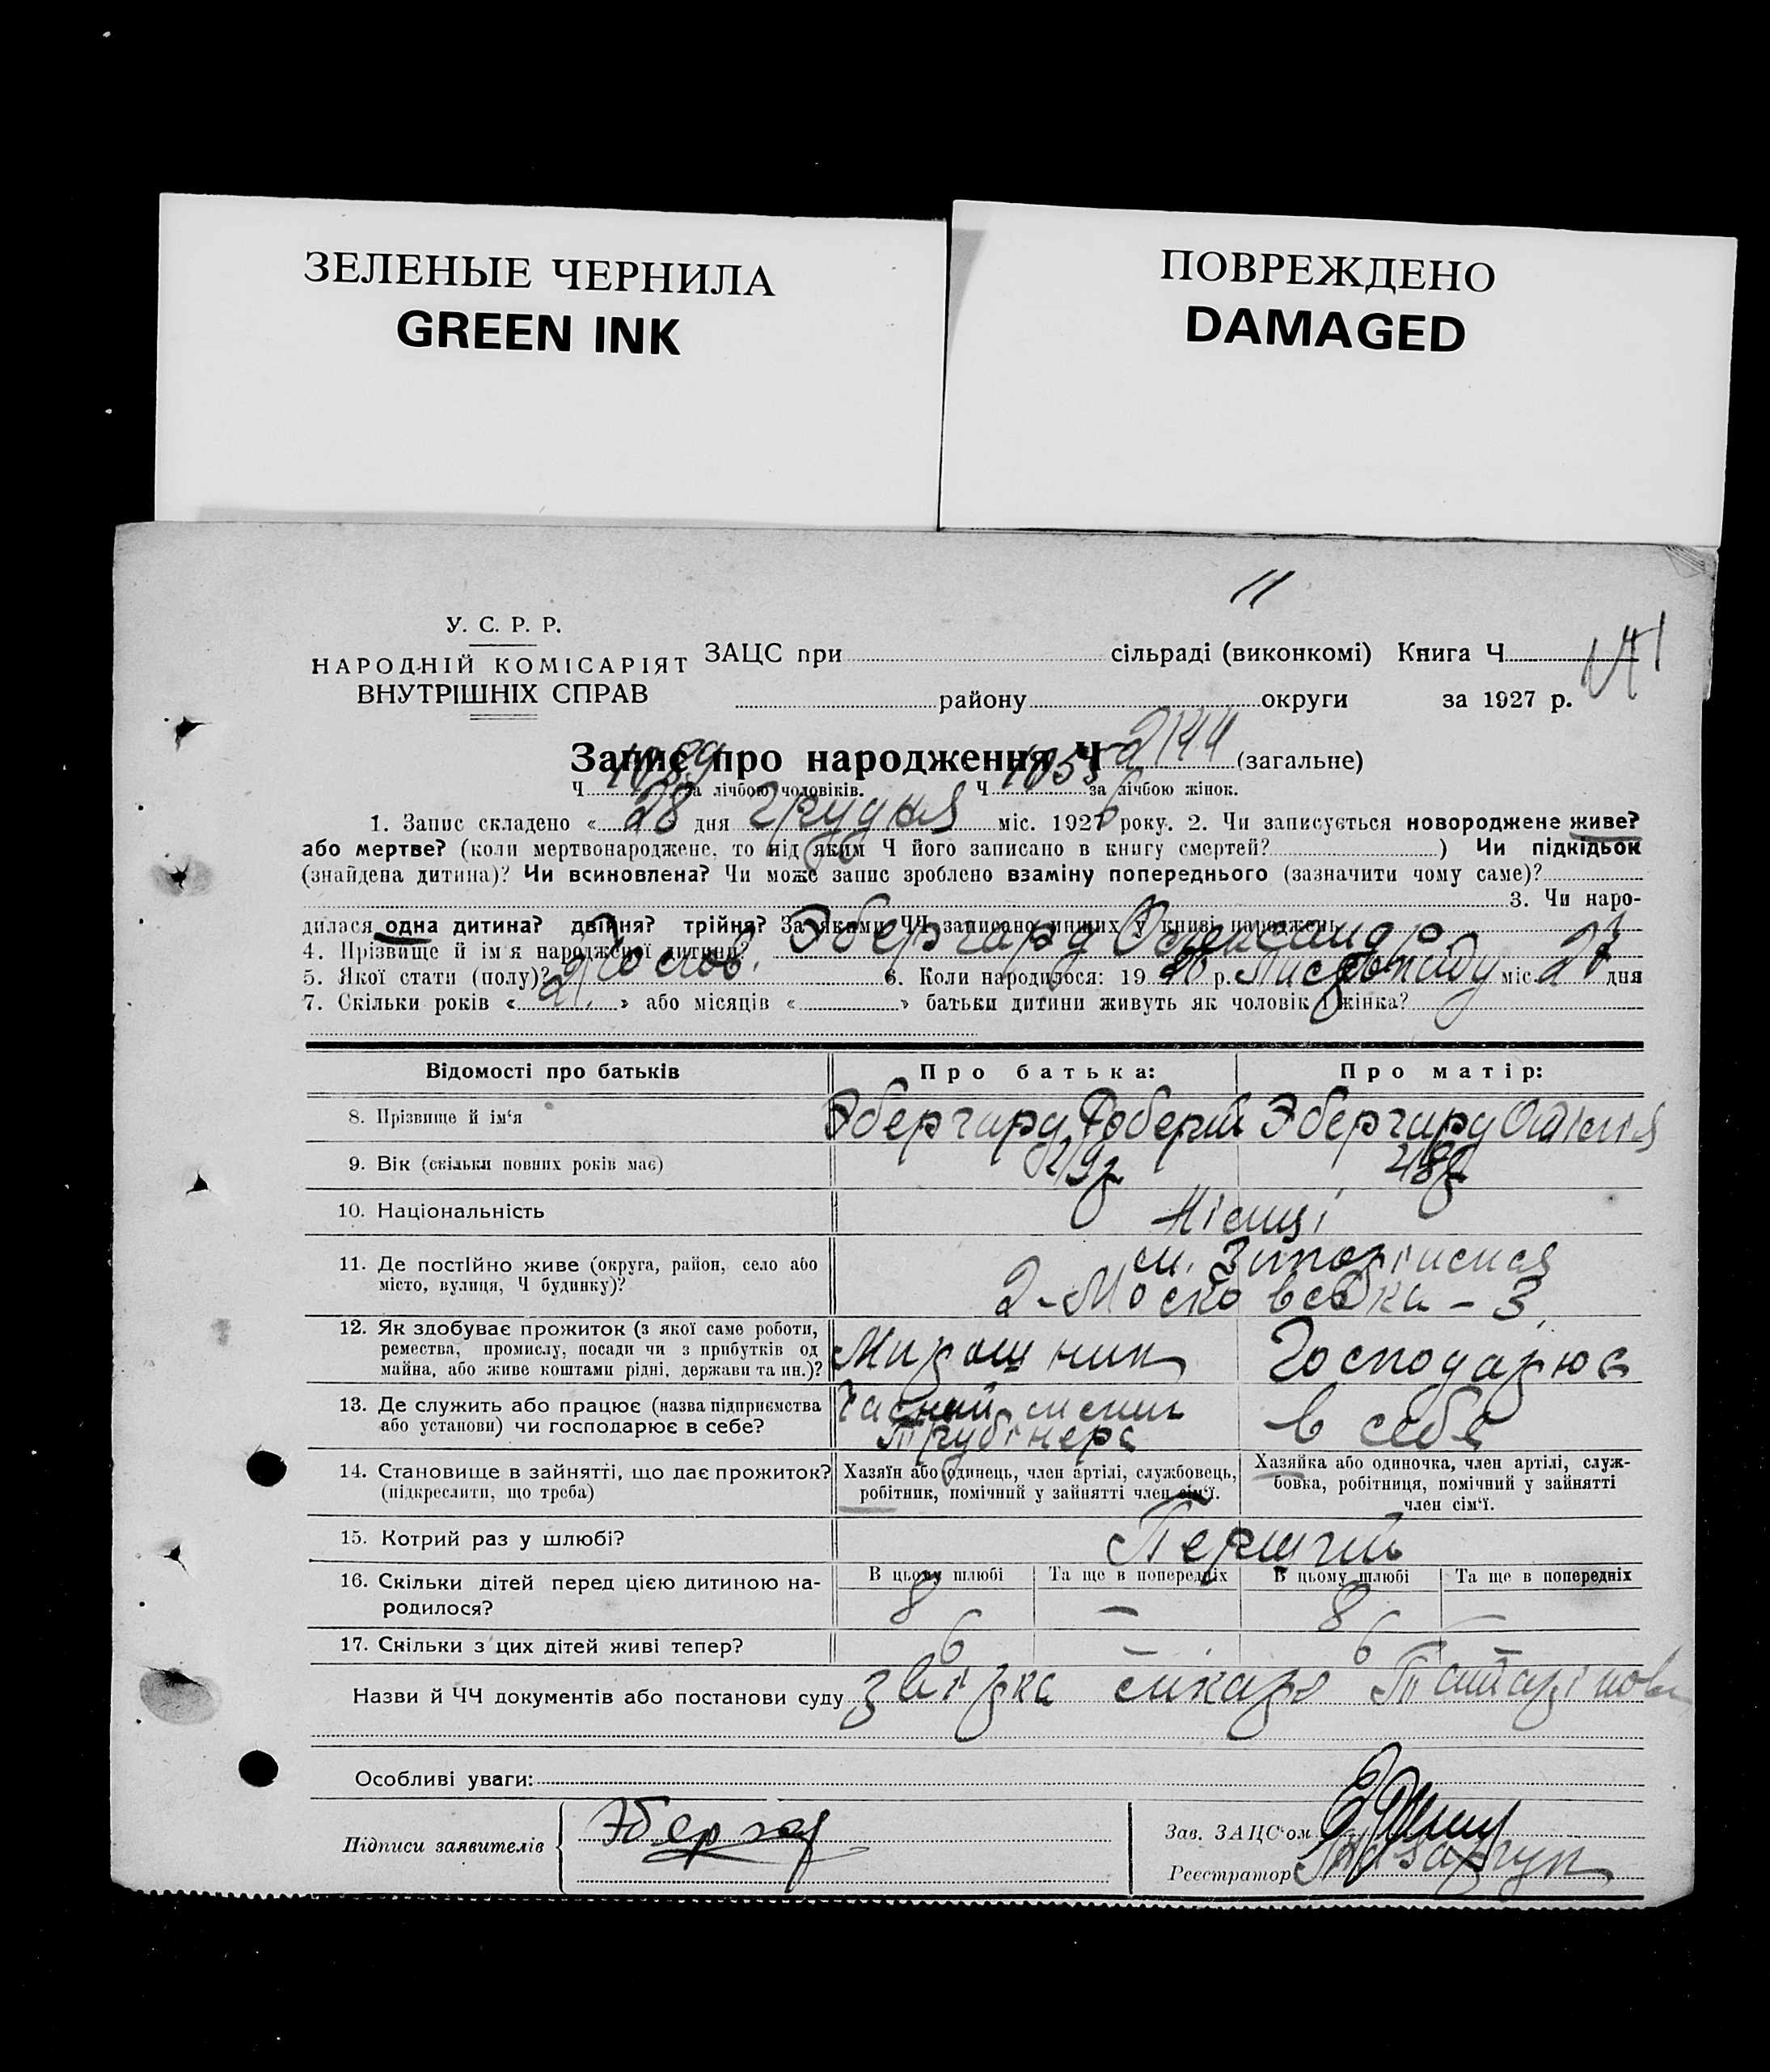 ЗЕЛЕНЫЕ ЧЕРНИЛА
GREEN INK
ПОВРЕЖДЕНО
DAMAGED
11
У. С. Р. Р.
НАРОДНІЙ КОМІСАРІЯТ
ВНУТРІШНІХ СПРАВ
ЗАЦС при сільраді (виконкомі) Книга Ч
району округи за 1927 р.
Запис про народження Ч 2144 (загальне)
Ч 1089 за лічбою чоловіків. Ч 1055 за лічбою жінок.
1. Запис складено « 28 дня Грудня міс. 1926 року. 2. Чи записується новороджене живе?
або мертве? (коли мертвонароджене, то під яким Ч його записано в книгу смертей? ) Чи підкідьок
(знайдена дитина)? Чи всиновлена? Чи може запис зроблено взаміну попереднього (зазначити чому саме)?
3. Чи наро-
дилася одна дитина? двійня? трійня? За якими ЧЧ записано инших у книзі народжень
4. Прізвище й ім'я народженої дитини? Эбергард Олександр
5. Якої стати (полу)? Чолов. 6. Коли народилося: 19 26 р. Листопаду міс. 27 дня
7. Скільки років « 21. » або місяців « » батьки дитини живуть як чоловік і жінка?
Відомості про батьків Про батька: Про матір:
8. Прізвище й ім'я Эбергард Роберт Эбергард
9. Вік (скільки повних років має)
10. Національність Німці
11. Де постійно живе (округа, район, село або
місто, вулиця, Ч будинку)? 2-Московська - 3
12. Як здобуває прожиток (з якої саме роботи,
ремества, промислу, посади чи з прибутків од
майна, або живе коштами рідні, держави та ин.)? Мирошник Господарює
13. Де служить або працює (назва підприємства
або установи) чи господарює в себе? в себе
14. Становище в зайнятті, що дає прожиток?
(підкреслити, що треба)
Хазяїн або одинець, член артілі, службовець,
робітник, помічний у зайнятті член сім'ї.
Хазяйка або одиночка, член артілі, служ-
бовка, робітниця, помічний у зайнятті
член сім'ї.
15. Котрий раз у шлюбі? Перший
В цьому шлюбі Та ще в попередніх В цьому шлюбі Та ще в попередніх
16. Скільки дітей перед цією дитиною на-
родилося? 8 — 8 —
17. Скільки з цих дітей живі тепер? 6 — 6
Назви й ЧЧ документів або постанови суду
Особливі уваги:
Підписи заявителів
Зав. ЗАЦС'ом
Реєстратор